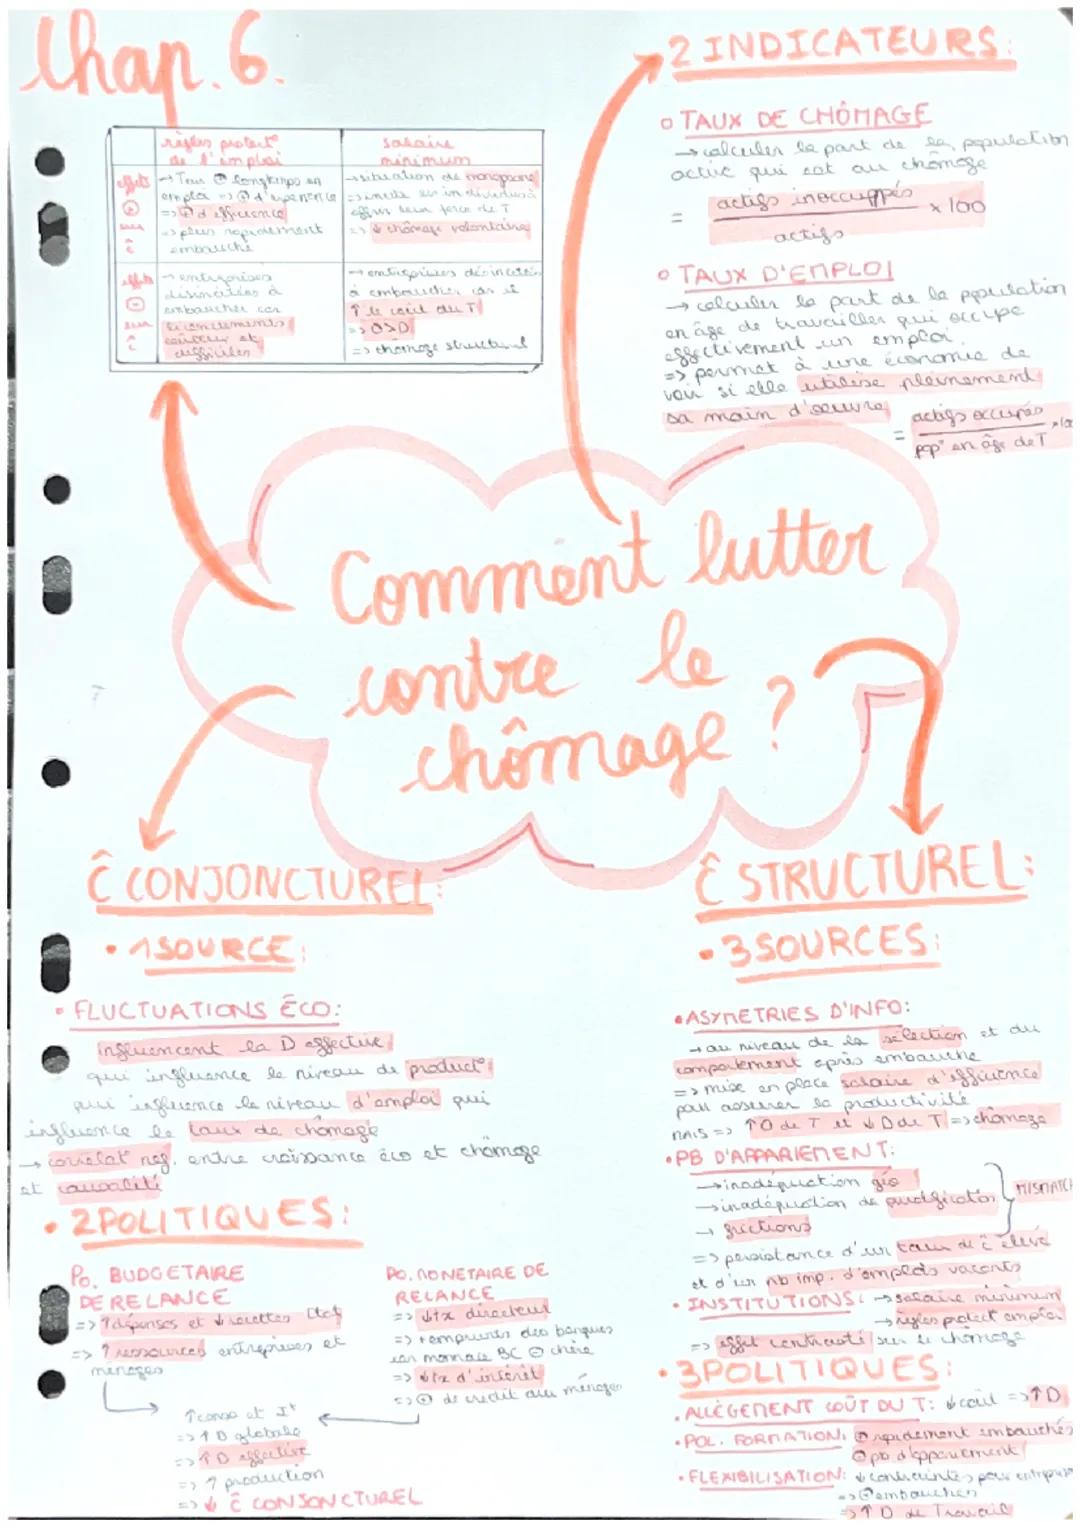 Chap. 6.
règles protect°
de l'emploi
salaire
minimum
effets
⊕
sur
ĉ
→ Trav ⊕ longtemps en
emploi => ⊕ d'expérience
=> ⊕ d'efficience
=> plus rapidement
embauché
→ situation de monopsone
=> incite les individus à
offrir leur force de T
=> ↓ chômage volontaire
effets
⊖
sur
ĉ
→ entreprises
désincitées à
embaucher car
licenciements
coûteux et
difficiles
→ entreprises désincitées
à embaucher car il
↑ le coût du T
=> O>D
=> chômage structurel
2 INDICATEURS:
o TAUX DE CHÔMAGE
→ calculer la part de la population
active qui est au chômage
= actifs inoccuppés / actifs x 100
o TAUX D'EMPLOI
→ calculer la part de la population
en âge de travailler qui occupe
effectivement un emploi.
=> permet à une économie de
voir si elle utilise pleinement
sa main d'oeuvre
= actifs occupés / pop° en âge de T x100
Comment lutter
contre le
chômage ?
Ĉ CONJONCTUREL:
• 1 SOURCE:
• FLUCTUATIONS ÉCO:
influencent la D effective
qui influence le niveau de product°
qui influence le niveau d'emploi qui
influence le taux de chômage
→ corrélat° nég. entre croissance éco et chômage
et causalité
• 2 POLITIQUES:
Po. BUDGETAIRE
DE RELANCE
=> ↑ dépenses et ↓ recettes Etat
=> ↑ ressources entreprises et
ménages
PO. MONETAIRE DE
RELANCE
=> ↓ tx directeur
=> + emprunts des banques
car monnaie BC ⊖ chère
=> ↓ tx d'intérêt
=> ⊕ de crédit aux ménages
↑ conso et I^t
=> ↑ D globale
=> ↑ D effective
=> ↑ production
=> ↓ Ĉ CONJONCTUREL
Ĉ STRUCTUREL:
• 3 SOURCES:
• ASYMETRIES D'INFO:
→ au niveau de la sélection et du
comportement après embauche
=> mise en place salaire d'efficience
pour assurer la productivité
MAIS => ↑ O de T et ↓ D de T => chômage
• PB D'APPARIEMENT:
→ inadéquation géo
→ inadéquation de qualification
→ frictions
MISMATCH
=> persistance d'un taux de ĉ élevé
et d'un nb imp. d'emplois vacants
• INSTITUTIONS: → salaire minimum
→ règles protect emploi
=> effet contrasté sur le chômage
• 3 POLITIQUES:
• ALLÈGEMENT COÛT DU T: ↓ coût => ↑ D
• POL. FORMATION: ⊕ rapidement embauchés
⊖ pb d'appariement
• FLEXIBILISATION: ↓ contraintes pour entreprise
=> ⊕ embauches
=> ↑ D de Travail